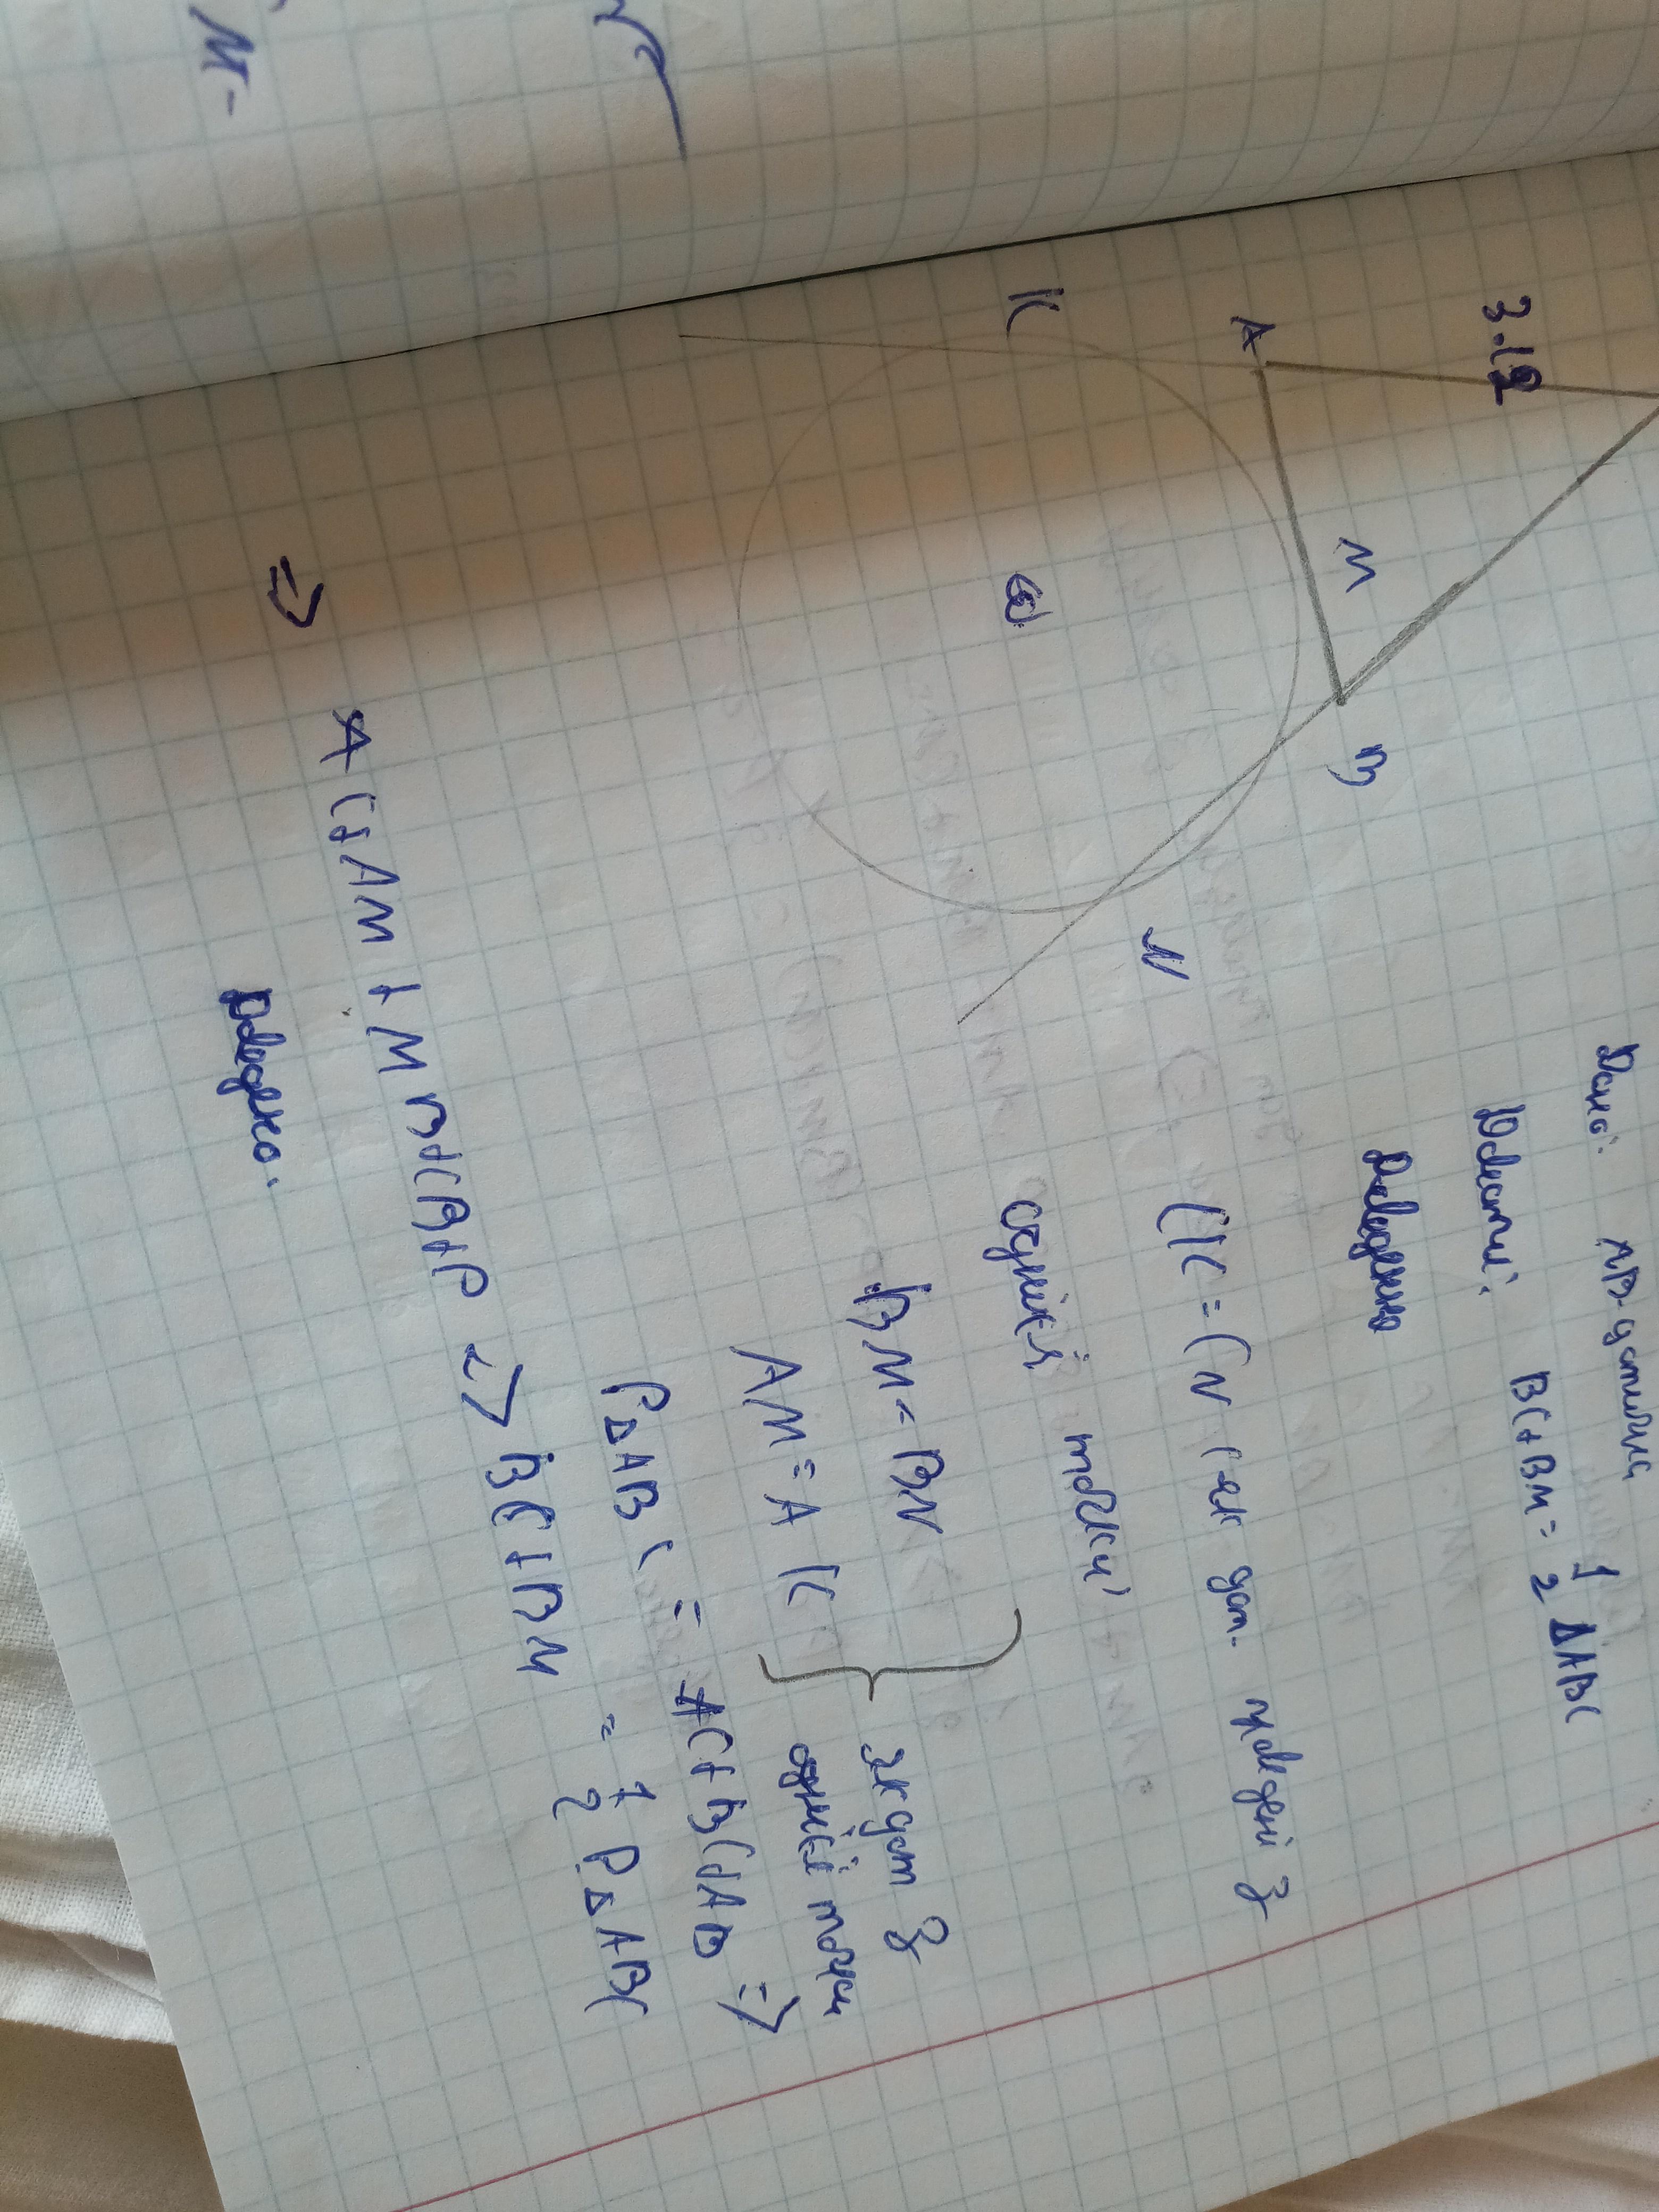 3.12
A
M
B
K
ω
N
Дано: AB-дотична
Довести: BC+BM=1/2 ΔABC
Доведення
CK=CN (як дот. проведені з
однієї точки)
BM=BN
AM=AK
як дот з
однієї точки
PΔABC = AC+BC+AB =>
=> AC+AM+MB+CB+P => BC+BM = 1/2 PΔABC
Доведено.